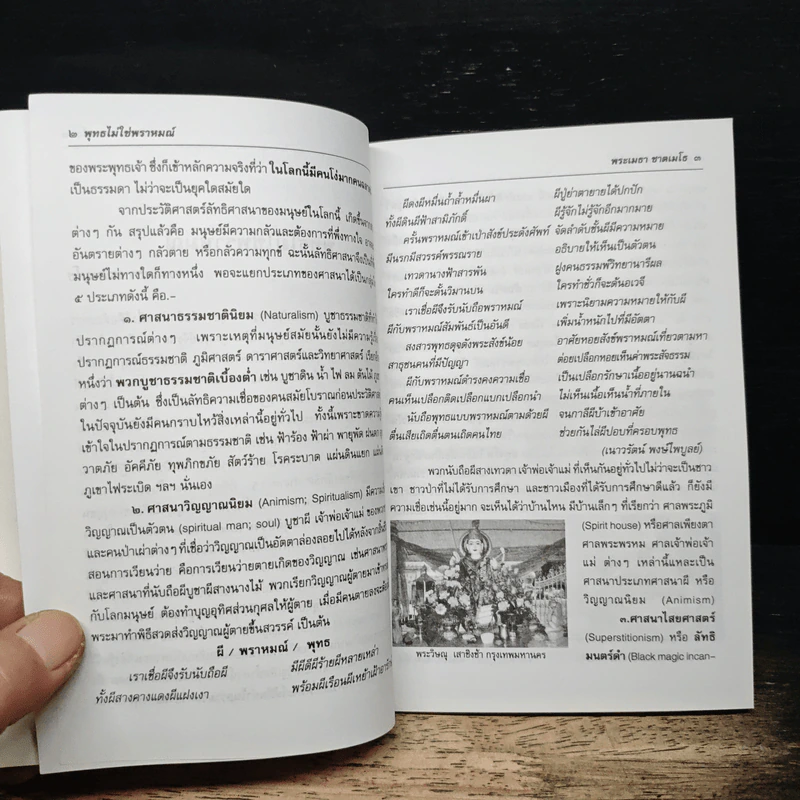 ๒ พุทธไม่ใช่พราหมณ์
ของพระพุทธเจ้า ซึ่งก็เข้าหลักความจริงที่ว่า ในโลกนี้มีคนโง่มากคน
เป็นธรรมดา ไม่ว่าจะเป็นยุคใดสมัยใด
จากประวัติศาสตร์ลัทธิศาสนาของมนุษย์ในโลกนี้ เกิดขึ้น
ต่างๆ กัน สรุปแล้วคือ มนุษย์มีความกลัวและต้องการที่พึ่งทางใจ
อันตรายต่างๆ กลัวตาย หรือกลัวความทุกข์ ฉะนั้นลัทธิศาสนาจึงเป็น
มนุษย์ไม่ทางใดก็ทางหนึ่ง พอจะแยกประเภทของศาสนาได้เป็น
๕ ประเภทดังนี้ คือ.-
๑. ศาสนาธรรมชาตินิยม (Naturalism) บูชาธรรมชาติ
ปรากฏการณ์ต่างๆ เพราะเหตุที่มนุษย์สมัยนั้นยังไม่มีความรู้
ปรากฏการณ์ธรรมชาติ ภูมิศาสตร์ ดาราศาสตร์และวิทยาศาสตร์
หนึ่งว่า พวกบูชาธรรมชาติเบื้องต่ำ เช่น บูชาดิน น้ำ ไฟ ลม ต้นไม้
ต่างๆ เป็นต้น ซึ่งเป็นลัทธิความเชื่อของคนสมัยโบราณก่อนประวัติศาสตร์
ในปัจจุบันยังมีคนกราบไหว้สิ่งเหล่านี้อยู่ทั่วไป ทั้งนี้เพราะขาดความ
เข้าใจในปรากฏการณ์ตามธรรมชาติ เช่น ฟ้าร้อง ฟ้าผ่า พายุพัด
วาตภัย อัคคีภัย ทุพภิกขภัย สัตว์ร้าย โรคระบาด แผ่นดินแยก
ภูเขาไฟระเบิด ฯลฯ นั่นเอง
๒. ศาสนาวิญญาณนิยม (Animism; Spiritualism) มีความ
วิญญาณเป็นตัวตน (spiritual man; soul) บูชาผี เจ้าพ่อเจ้าแม่
และคนป่าเผ่าต่างๆ ที่เชื่อว่าวิญญาณเป็นอัตตาล่องลอยไปได้หลังจาก
สอนการเวียนว่าย คือการเวียนว่ายตายเกิดของวิญญาณ เช่นศาสนา
และศาสนาที่นับถือผีบูชาผีสางนางไม้ พวกเรียกวิญญาณผู้ตายมาเข้า
กับโลกมนุษย์ ต้องทำบุญอุทิศส่วนกุศลให้ผู้ตาย เมื่อมีคนตายลง
พระมาทำพิธีสวดส่งวิญญาณผู้ตายขึ้นสวรรค์ เป็นต้น
ผี / พราหมณ์ / พุทธ
เราเชื่อผีจึงรับนับถือผี มีผีดีผีร้ายผีหลายเหล่า
ทั้งผีสางคางแดงผีแฝงเงา พร้อมผีเรือนผีเหย้าเฝ้า
พระเมธา ชาตเมโธ ๓
ผีดงผีหมื่นถ้ำล้ำหมื่นผา ผีปู่ย่าตายายได้ปกปัก
ทั้งผีดินผีฟ้าสามิภักดิ์ ผีรู้จักไม่รู้จักอีกมากมาย
ครั้นพราหมณ์เข้าเป่าสังข์ประดังศัพท์ จัดลำดับชั้นผีมีความหมาย
มีนรกมีสวรรค์พรรณราย อธิบายให้เห็นเป็นตัวตน
เทวดานางฟ้าสารพัน ฝูงคนธรรพ์วิทยานารีผล
ใครทำดีก็จะดั้นวิมานบน ใครทำชั่วก็จะด้นอเวจี
เราเชื่อผีจึงรับนับถือพราหมณ์ เพราะนิยามความหมายให้กับผี
ผีกับพราหมณ์สัมพันธ์เป็นอันดี เพิ่มน้ำหนักไปที่มีอัตตา
สงสารพุทธดุจดังพระสังข์น้อย อาศัยหอยสังข์พราหมณ์เที่ยวตามหา
สาธุชนคนที่มีปัญญา ต่อยเปลือกหอยเห็นค่าพระสัจธรรม
ผีกับพราหมณ์ดำรงคงความเชื่อ เป็นเปลือกรักษาเนื้ออยู่นานฉนำ
คนเห็นเปลือกติดเปลือกแบกเปลือกนำ ไม่เห็นเนื้อเห็นน้ำที่ภายใน
นับถือพุทธแบบพราหมณ์ตามด้วยผี จนกาลีผีบ้าเข้าอาศัย
ตื่นเสียเถิดตื่นตนเถิดคนไทย ช่วยกันไล่ผีปอบที่ครอบพุทธ
(เนาวรัตน์ พงษ์ไพบูลย์)
พวกนับถือผีสางเทวดา เจ้าพ่อเจ้าแม่ ที่เห็นกันอยู่ทั่วไปไม่ว่าจะเป็นชาว
เขา ชาวป่าที่ไม่ได้รับการศึกษา และชาวเมืองที่ได้รับการศึกษาดีแล้ว ก็ยังมี
ความเชื่อเช่นนี้อยู่มาก จะเห็นได้ว่าบ้านไหน มีบ้านเล็กๆ ที่เรียกว่า ศาลพระภูมิ
(Spirit house) หรือศาลเพียงตา
ศาลพระพรหม ศาลเจ้าพ่อเจ้า
แม่ ต่างๆ เหล่านี้แหละเป็น
ศาสนาประเภทศาสนาผี หรือ
วิญญาณนิยม (Animism)
๓.ศาสนาไสยศาสตร์
(Superstitionism) หรือ ลัทธิ
มนตร์ดำ (Black magic incan-
พระวิษณุ เสาชิงช้า กรุงเทพมหานคร